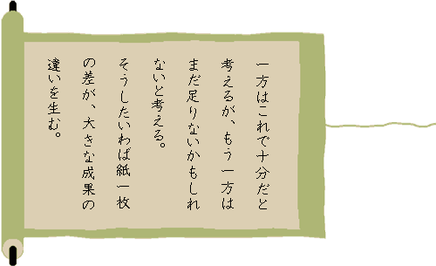 一方はこれで十分だと
考えるが、もう一方は
まだ足りないかもしれ
ないと考える。
そうしたいわば紙一枚
の差が、大きな成果の
違いを生む。